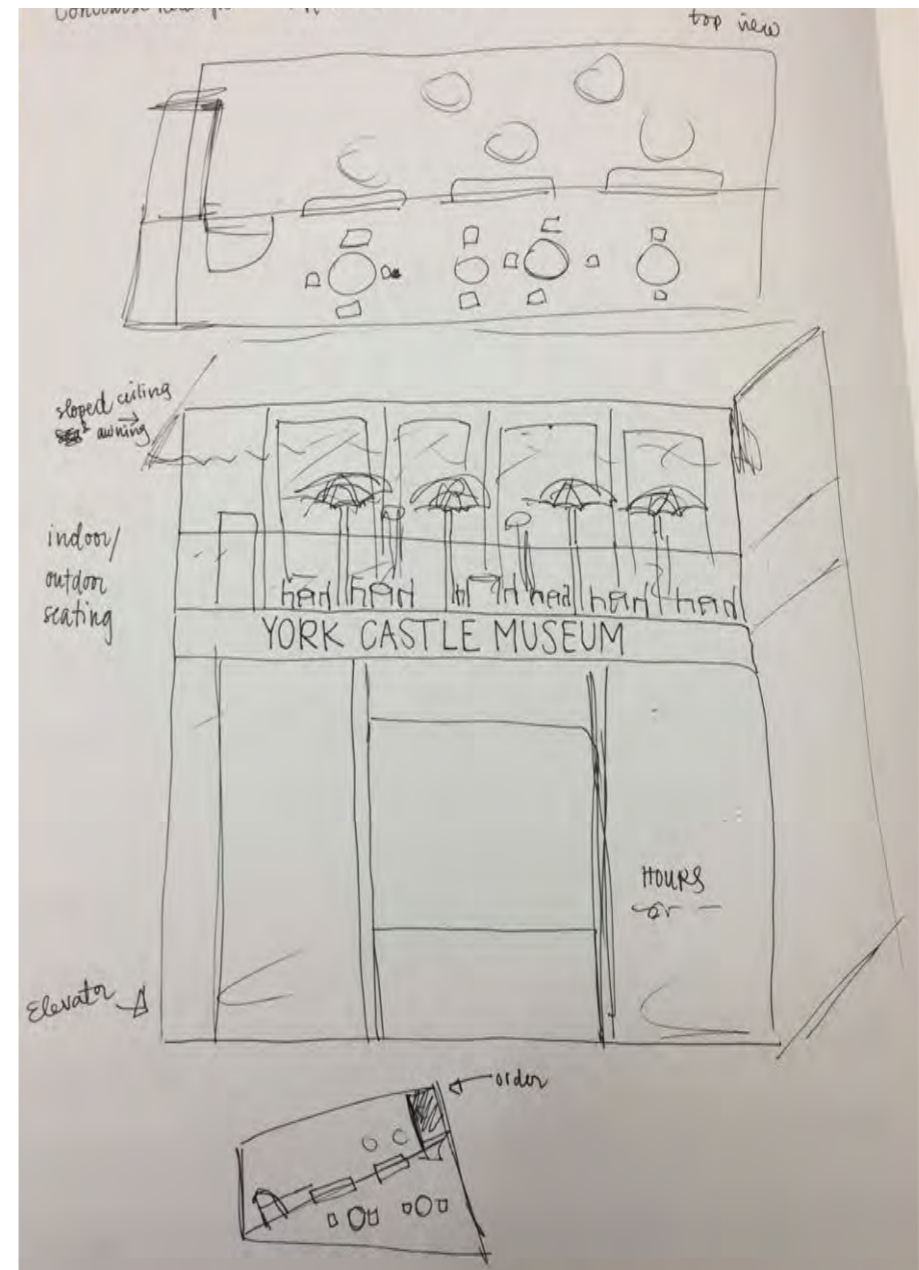 top view
sloped ceiling
awning
indoor/
outdoor
seating
YORK CASTLE MUSEUM
HOURS
Elevator
order